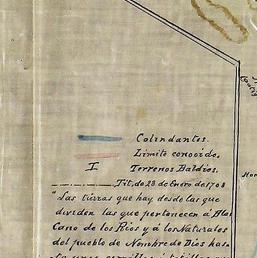 Colindantes.
Límite conocido.
I Terrenos Baldíos.
Tit. de 28 de Enero de 1708
"Las tierras que hay desde las que
dividen las que pertenecen á Blas
Cano de los Rios y á los Naturales
del pueblo de Nombre de Dios has-